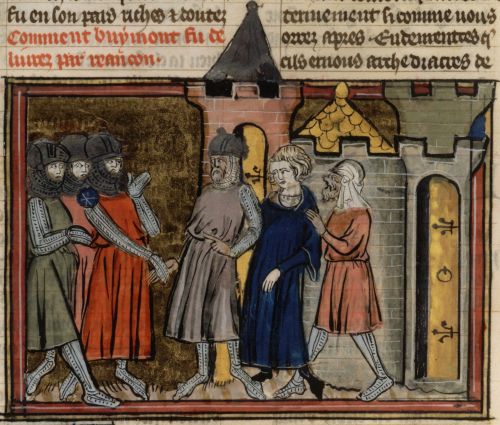 fu en son pais riches ⁊ doutez
Comment buymont fu de
liurez par reancon.
terinement si comme uous
orrez apres. Endementres q̄
cils ernous archediacres de